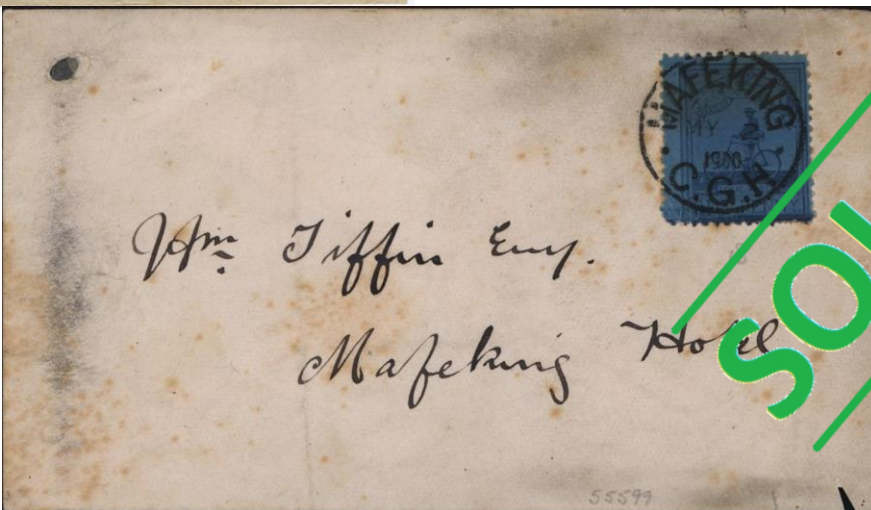 MAFEKING
MY 2
1900
C.G.H
Wm Tiffin Esq.
Mafeking Hotel
55599
SOL